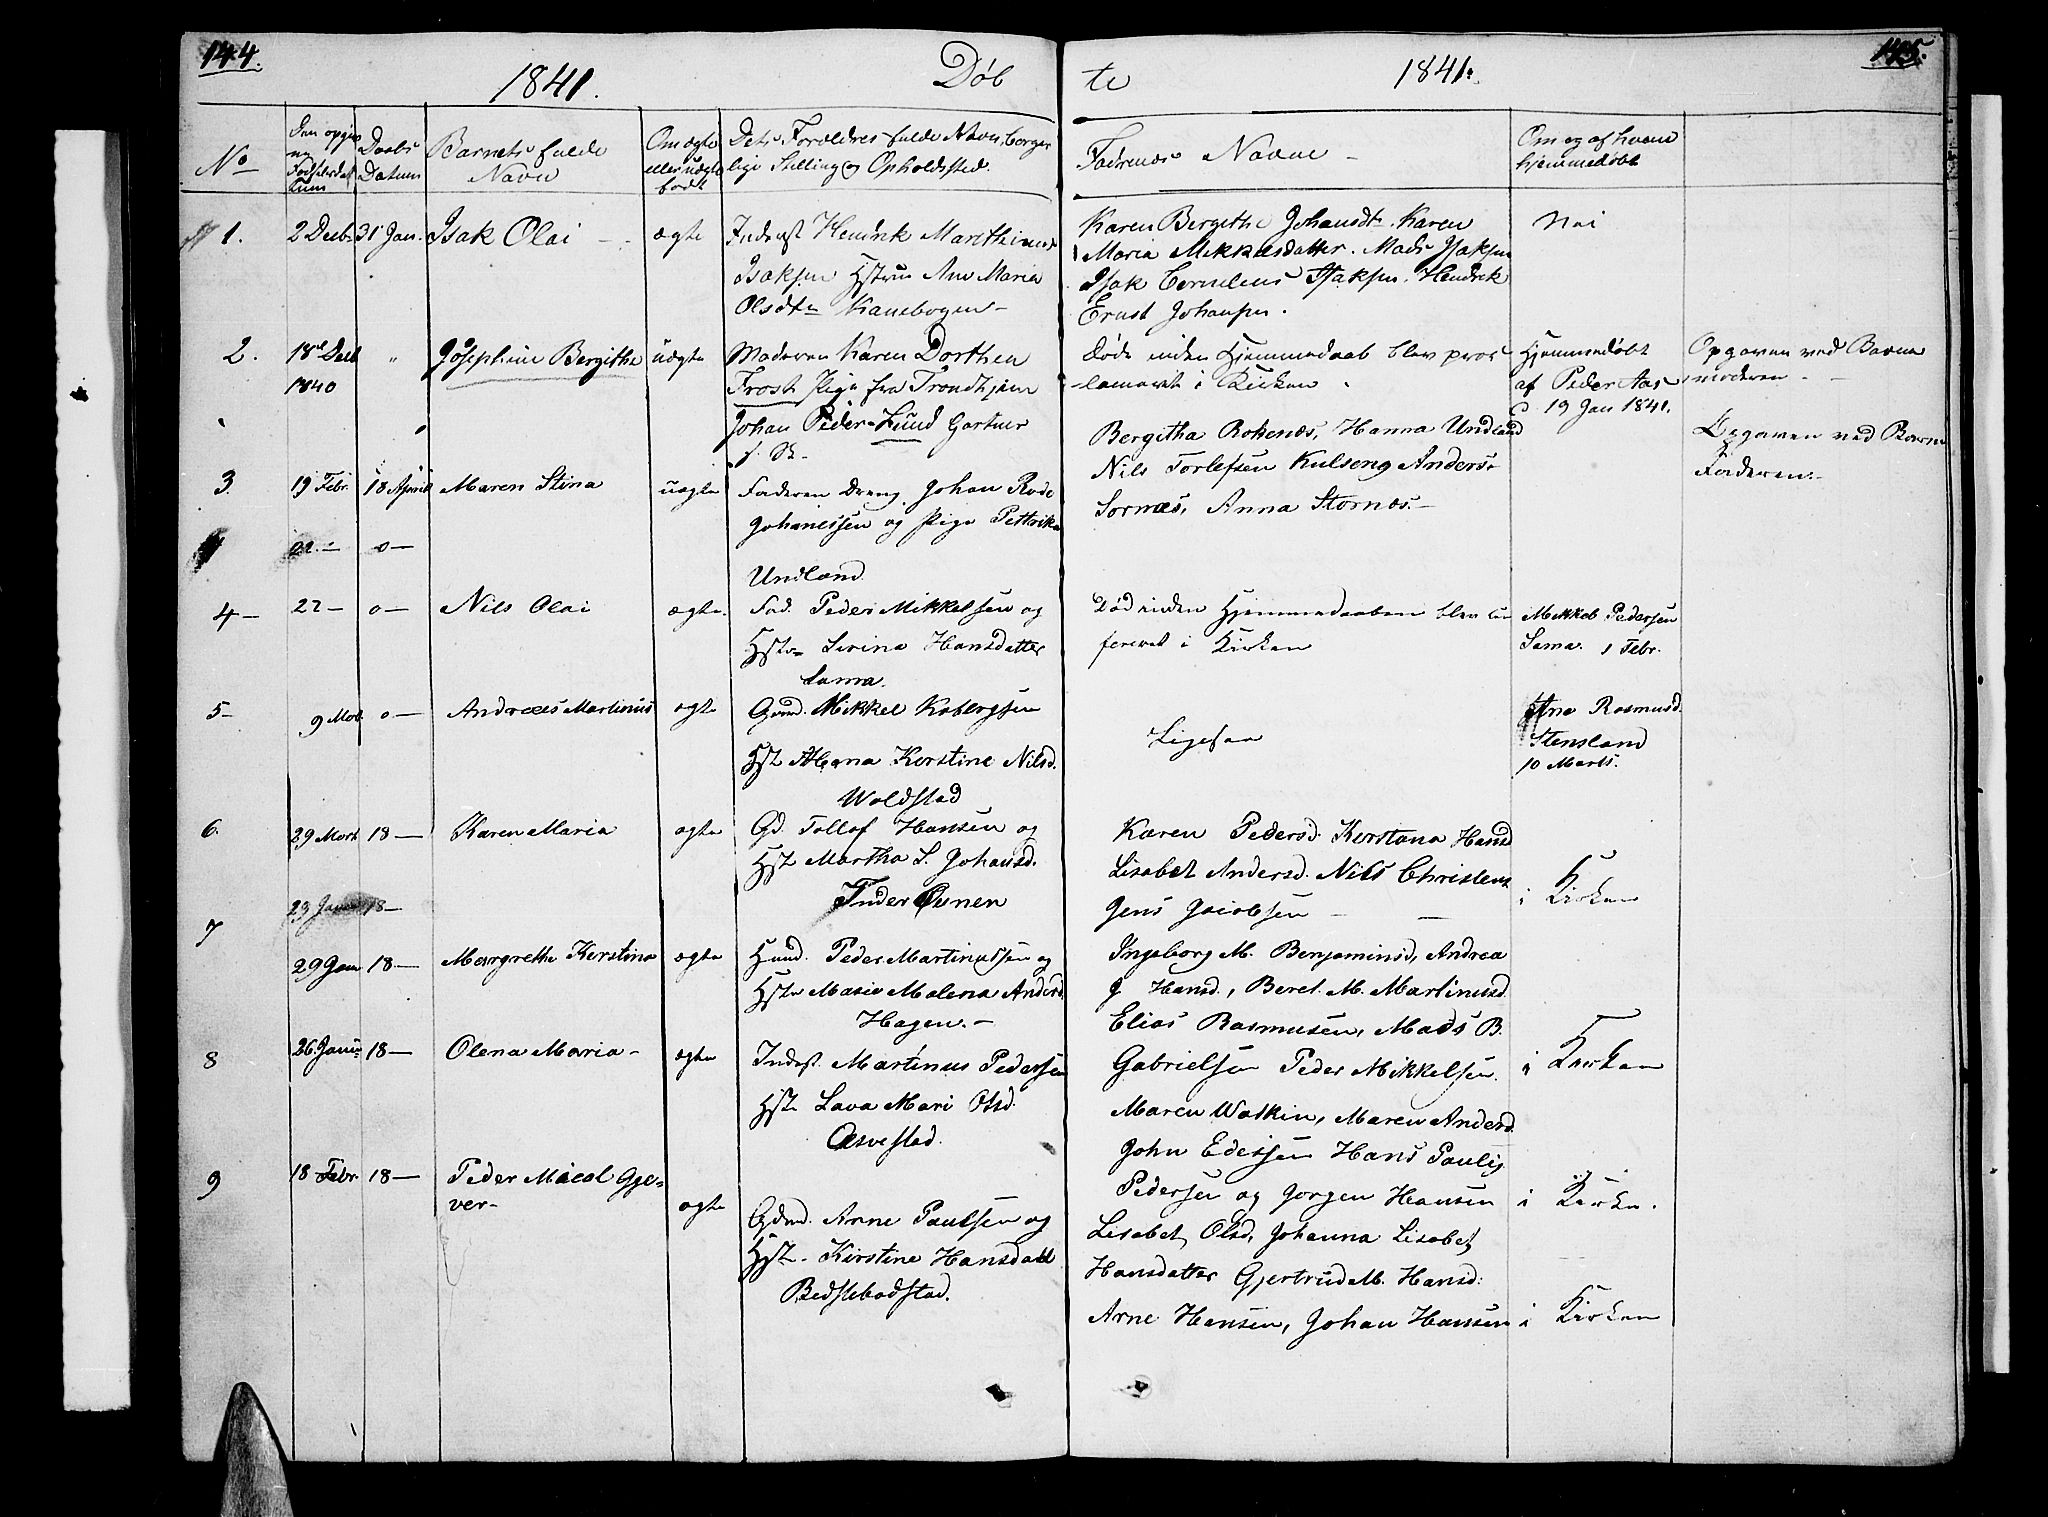 144.
1841.
Döb
te
1841.
145.
No
Den opgivne Fødselsdatum
Daabs Datum
Barnets fulde Navn
Om ægte eller uægte født
Dets Forældres fulde Navn, borgerlige Stilling og Opholdssted.
Fadernes Navne
Om og af hvem hjemmedøbt
1.
2 Decbr
31 Jan.
Isak Olai
ægte
Inderst Hendrik Marthinus
Isaksen Hstru Ane Maria
Olsdtr Kanebogen
Karen Bergithe Johansdtr. Karen
Maria Mikkelsdatter. Mads Isaksen
Isak Cornelius Isaksen. Hendrik
Ernst Johansen.
Nei
2.
18de Decb
1840
"
Josephine Bergithe
uægte
Moderen Karen Dorthea
Frost Pige fra Trondhjem
Johan Peder Lund Gartner
Døde inden Hjemmedaab blev proclameret i Kirken
Hjemmedøbt
af Peder Aas
d 19 Jan 1841.
Opgaven ved Barnemoderen
3.
19 Febr.
18 April
Maren Stina
uægte
Faderen Dreng Johan Rode
Johanessen og Pige Pettrika
Undland.
Bergitha Rokenæs, Hanna Undland
Nils Torlefsen Kulseng Anders
Sornæs, Anna Stornæs.
Opgaven ved Barnefaderen.
22 — o —
4 —
22 —
o —
Nils Olai
ægte.
Fad. Peder Mikkelsen og
Hstr Serina Hansdatter
Sama.
Død inden Hjemmedaaben blev
i Kirken
Mikkel Pedersen
Sama. 1 Febr.
5 —
9 Mar
o —
Andreas Martinus
ægte
Gmd. Mikkel Kobergsen
Hst. Anna Kerstine Nilsd.
Woldstad
Ligesaa
Ane Rasmusd.
Stensland
10 Marts.
6.
29 Mart
18 —
Karen Maria
ægte
Gd. Tollof Hansen og
Hst Martha S. Johansd.
Karen Pedersd. Kerstana Hansd
Lisabet Andersd. Nils Christens
Jens Jacobsen —
i Kirken
23 Janu
18 —
7
29 Jan
18 —
Margrethe Kerstina
ægte
Huusd. Peder Martinussen og
Hstr Maria Malena Andersd
Hagen. —
Ingeborg M. Benjaminsd, Andrea
J Hansd., Beret. M. Martinusd.
Elias Rasmusen, Mads B.
Gabrielsen Peder Mikkelsen.
i Kirken
8
26 Janu
18 —
Olena Maria —
ægte
Inderst. Martinus Pedersen
Hst. Lava Mari Olsd.
Asvestad.
Maren Watkin, Maren Andersd.
John Edissen Hans Paulig
Pedersen og Jorgen Hansen
i Kirken.
9
18 Febr.
18 —
Peder Micael Gje=
ver —
ægte
Gdmd. Arne Paulsen og
Hst. Kirstine Hansdatt
Bedstebodstad.
Lisabet Olsd, Johanna Lisabet,
Hansdatter Gjertrud M. Hansd:
Arne Hansen, Johan Hansen
i Kirken